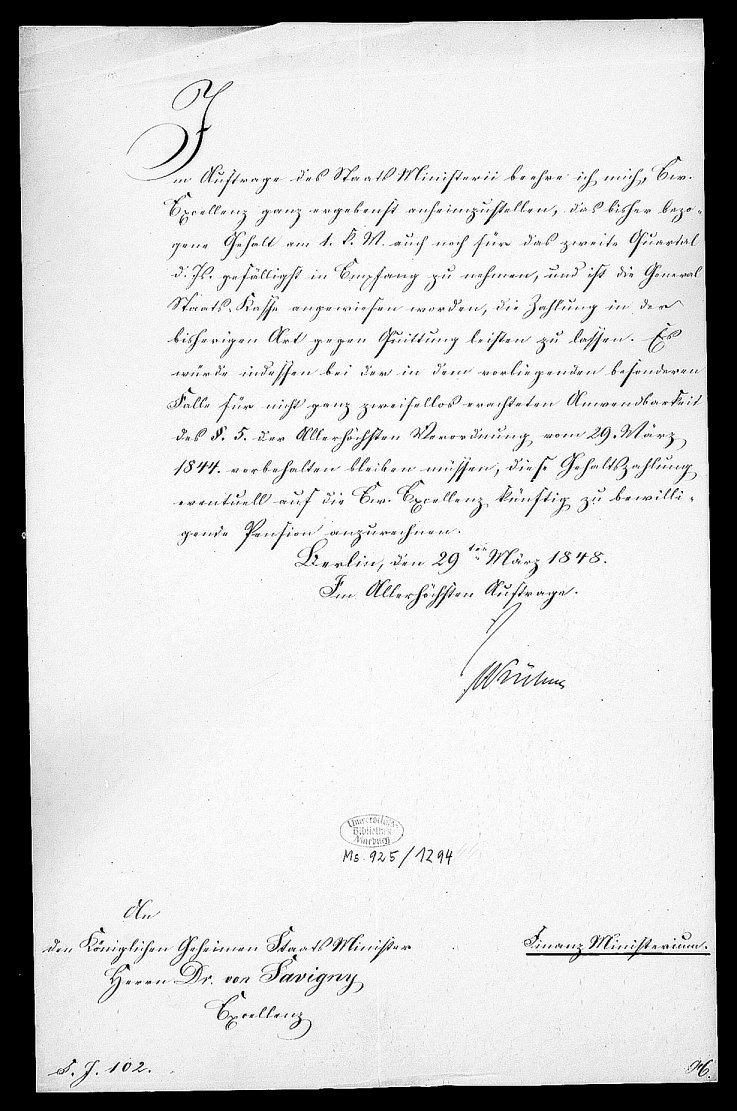 Im Auftrage des Staats Ministerii beehre ich mich, Ew.
Excellenz ganz ergebenst anheimzustellen, das bisher bezo-
gene Gehalt am 1. k. M. auch noch für das zweite Quartal
d. Js. gefälligst in Empfang zu nehmen, und ist die General
Staats-Kasse angewiesen worden, die Zahlung in der
bisherigen Art gegen Quittung leisten zu lassen. Es
würde indessen bei der in dem vorliegenden besonderen
Falle für nicht ganz zweifellos erachteten Anwendbarkeit
des §. 5. der Allerhöchsten Verordnung vom 29. März
1844. vorbehalten bleiben müssen, diese Gehaltszahlung
eventuell auf die Ew. Excellenz künftig zu bewilli-
gende Pension anzurechnen.
Berlin, den 29ten März 1848.
Im Allerhöchsten Auftrage.
Universitäts-
Bibliothek
Marburg
Ms. 925/1294
An
den Königlichen Geheimen Staats Minister
Herrn Dr. von Savigny
Excellenz
Finanz Ministerium.
J. 102.